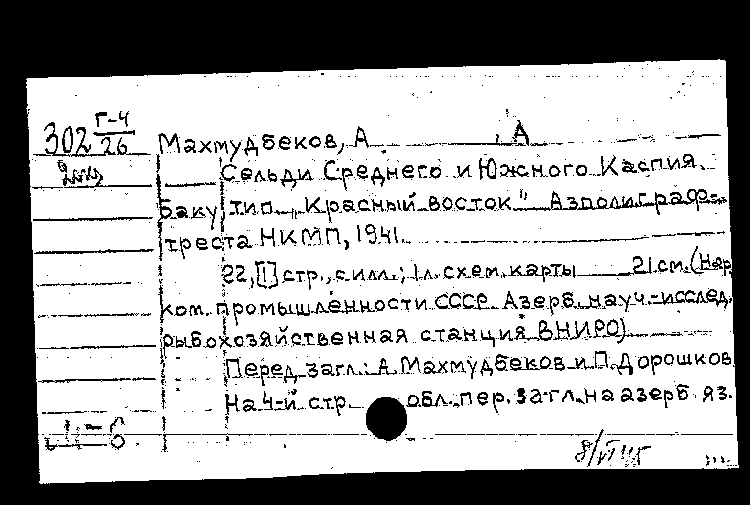 302 Г-4/26
Махмудбеков, А А
Сельди Среднего и Южного Каспия.
Баку, тип. „Красный восток" Азполиграф-
треста НКМП, 1941.
22, [1] стр., с илл.; 1 л. схем. карты 21 см. (Нар.
ком. промышленности СССР. Азерб. науч.-исслед.
рыбохозяйственная станция ВНИРО)
Перед загл.: А. Махмудбеков и П. Дорошков
На 4-й стр. обл. пер. загл. на азерб. яз.
8/VI 45